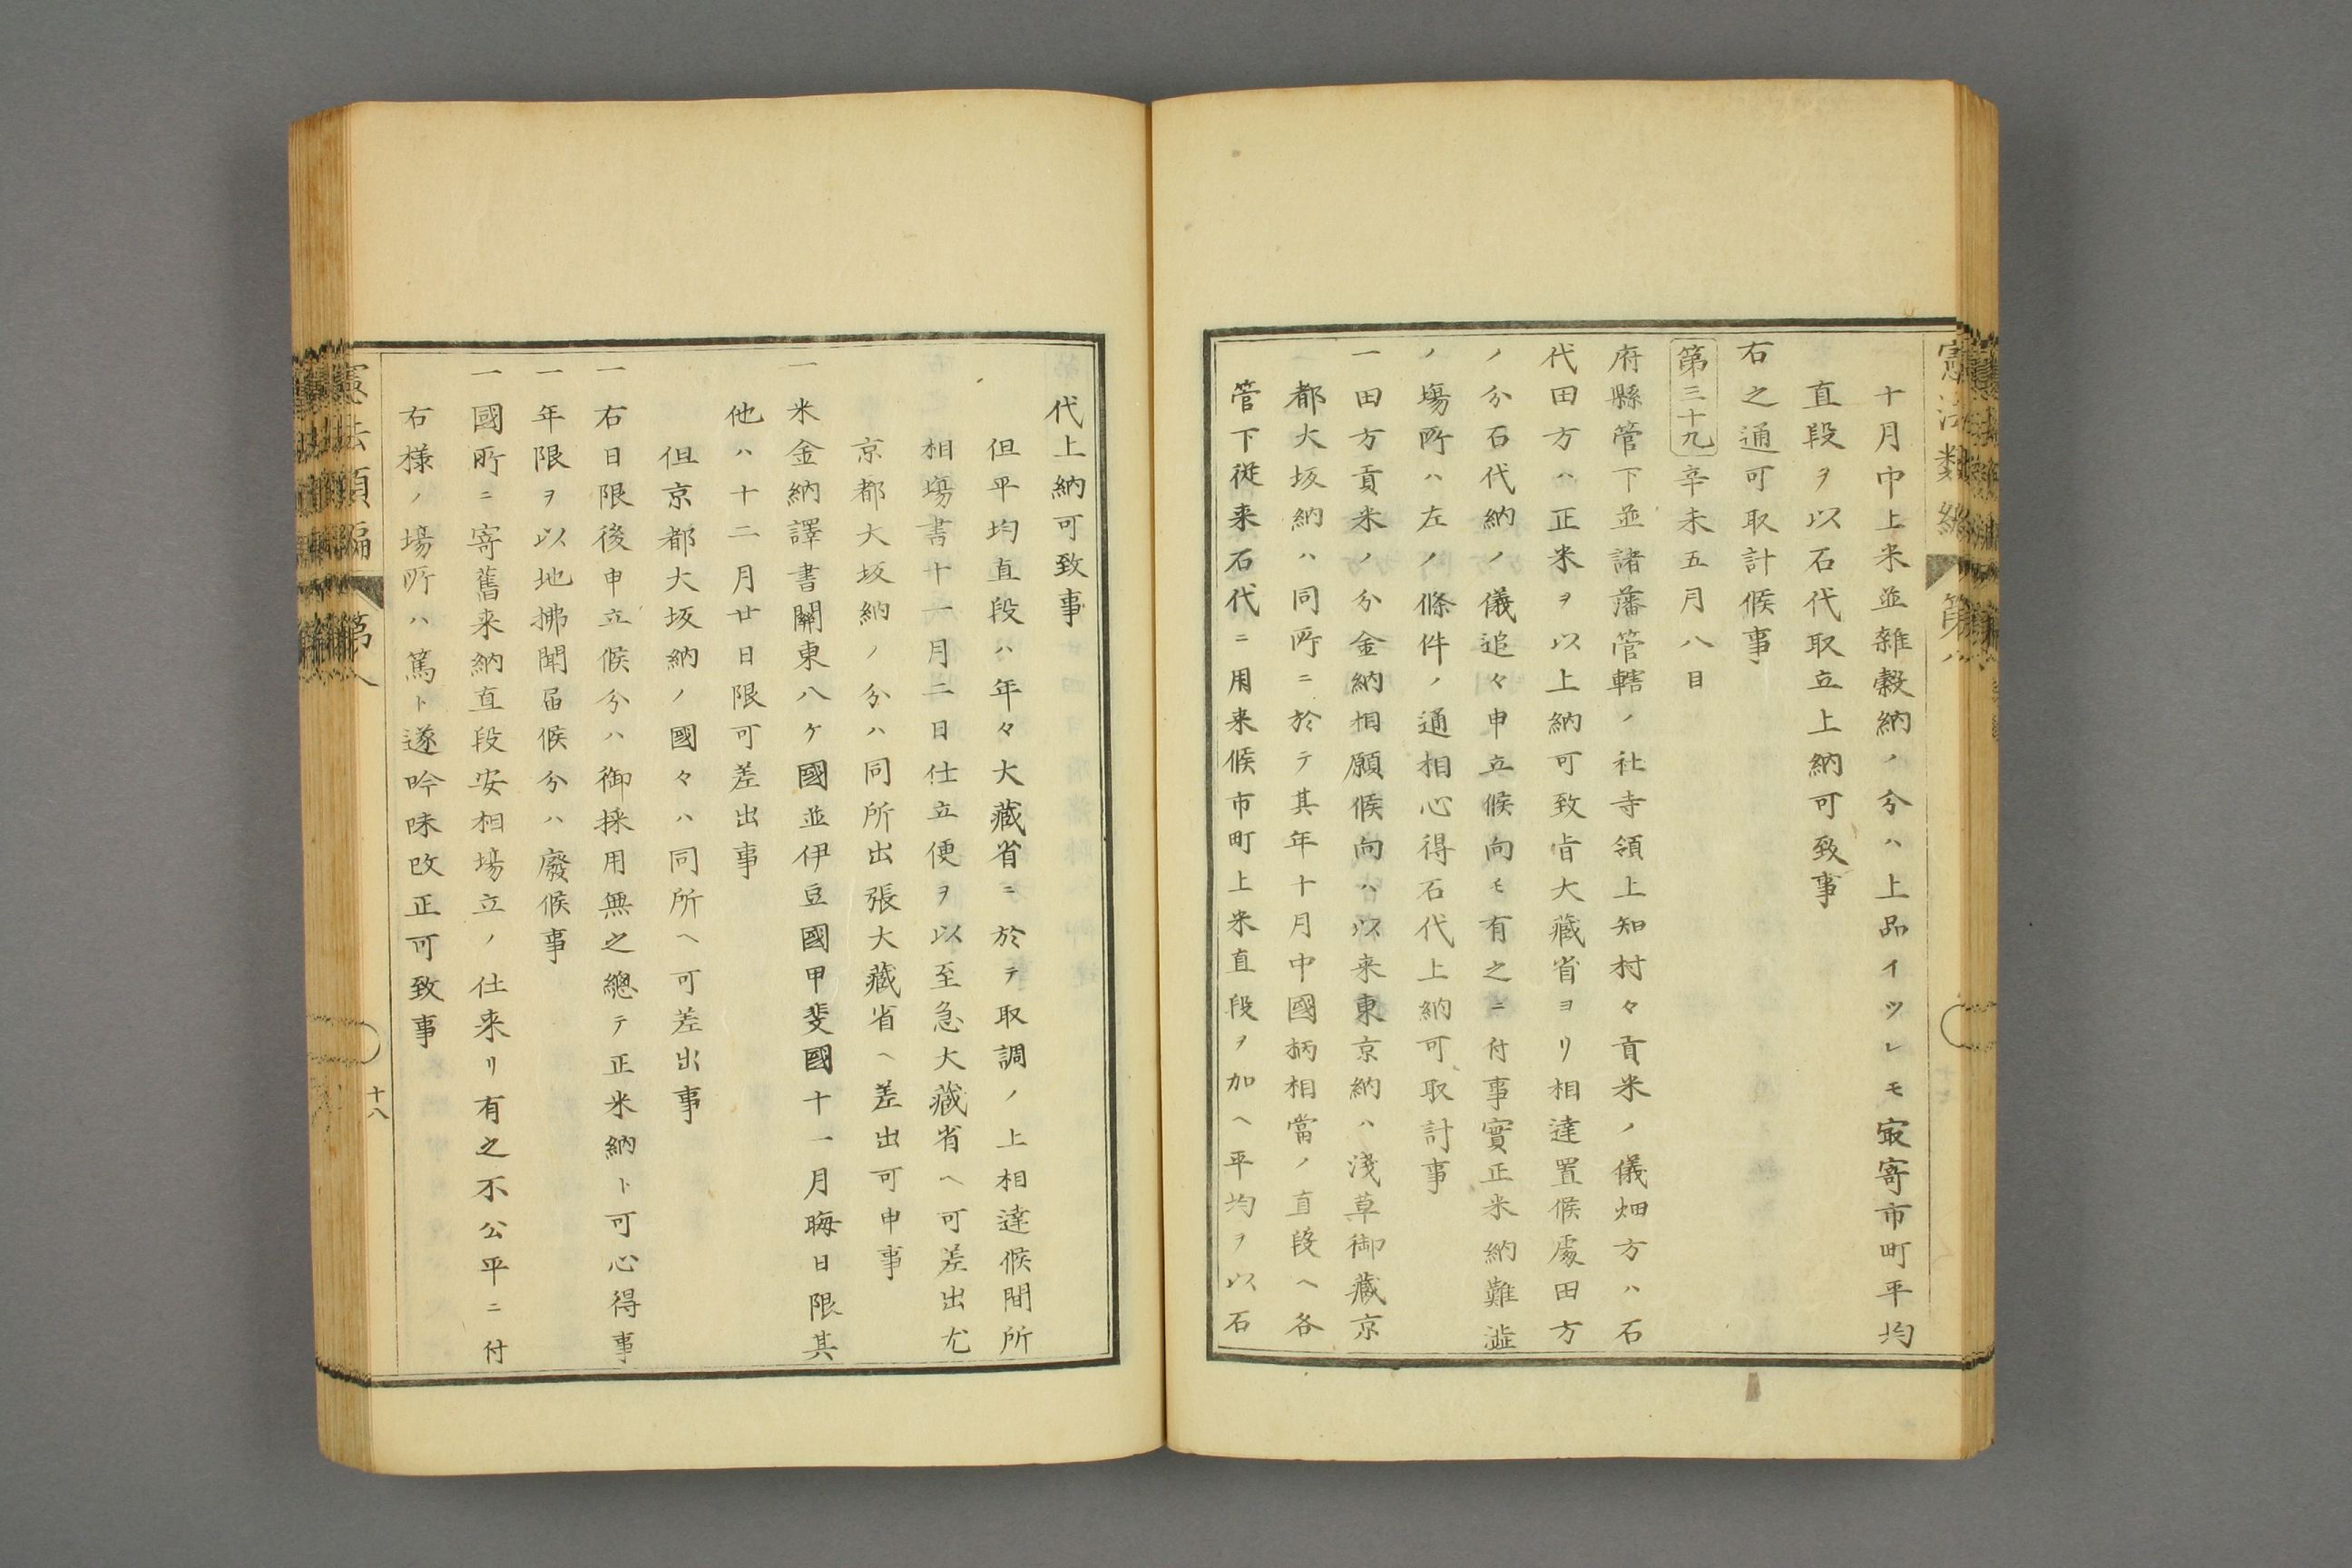 憲法類編 第八
十月中上米並雜穀納ノ分ハ上品イツレモ㝡寄市町平均
直段ヲ以石代取立上納可致事
右之通可取計候事
第三十九 辛未五月八日
府縣管下並諸藩管轄ノ社寺領上知村々貢米ノ儀畑方ハ石
代田方ハ正米ヲ以上納可致旨大藏省ヨリ相達置候處田方
ノ分石代納ノ儀追々申立候向モ有之ニ付事實正米納難澁
ノ塲所ハ左ノ條件ノ通相心得石代上納可取計事
一田方貢米ノ分金納相願候向ハ以来東京納ハ淺草御藏京
都大坂納ハ同所ニ於テ其年十月中國柄相當ノ直段ヘ各
管下従来石代ニ用来候市町上米直段ヲ加ヘ平均ヲ以石
代上納可致事
但平均直段ハ年々大藏省ニ於テ取調ノ上相達候間所
相塲書十一月二日仕立便ヲ以至急大藏省ヘ可差出尤
京都大坂納ノ分ハ同所出張大藏省ヘ差出可申事
一米金納譯書關東八ケ國並伊豆國甲斐國十一月晦日限其
他ハ十二月廿日限可差出事
但京都大坂納ノ國々ハ同所ヘ可差出事
一右日限後申立候分ハ御採用無之總テ正米納ト可心得事
一年限ヲ以地拂聞届候分ハ廢候事
一國所ニ寄舊来納直段安相塲立ノ仕来リ有之不公平ニ付
右様ノ塲所ハ篤ト遂吟味改正可致事
憲法類編 第八
十八